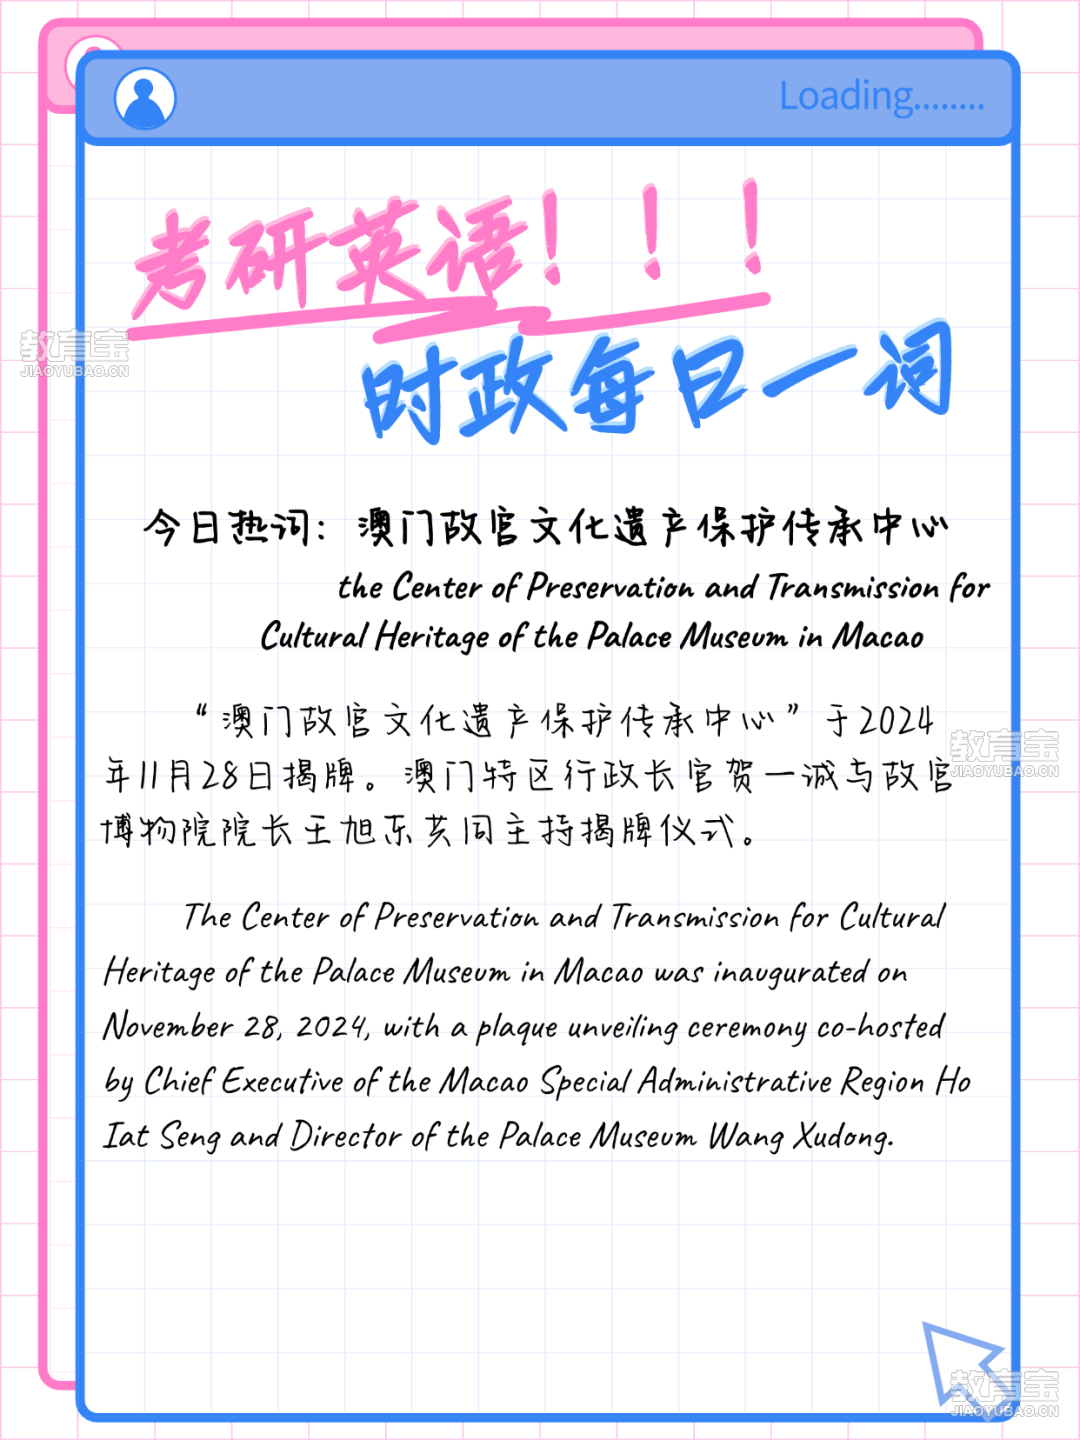 Loading........
考研英语！！！
时政每日一词
教育宝
JIAOYUBAO.CN
今日热词：澳门故宫文化遗产保护传承中心
the Center of Preservation and Transmission for
Cultural Heritage of the Palace Museum in Macao
“澳门故宫文化遗产保护传承中心”于2024
年11月28日揭牌。澳门特区行政长官贺一诚与故宫
博物院院长王旭东共同主持揭牌仪式。
教育宝
JIAOYUBAO.CN
The Center of Preservation and Transmission for Cultural
Heritage of the Palace Museum in Macao was inaugurated on
November 28, 2024, with a plaque unveiling ceremony co-hosted
by Chief Executive of the Macao Special Administrative Region Ho
Iat Seng and Director of the Palace Museum Wang Xudong.
教育宝
JIAOYUBAO.CN